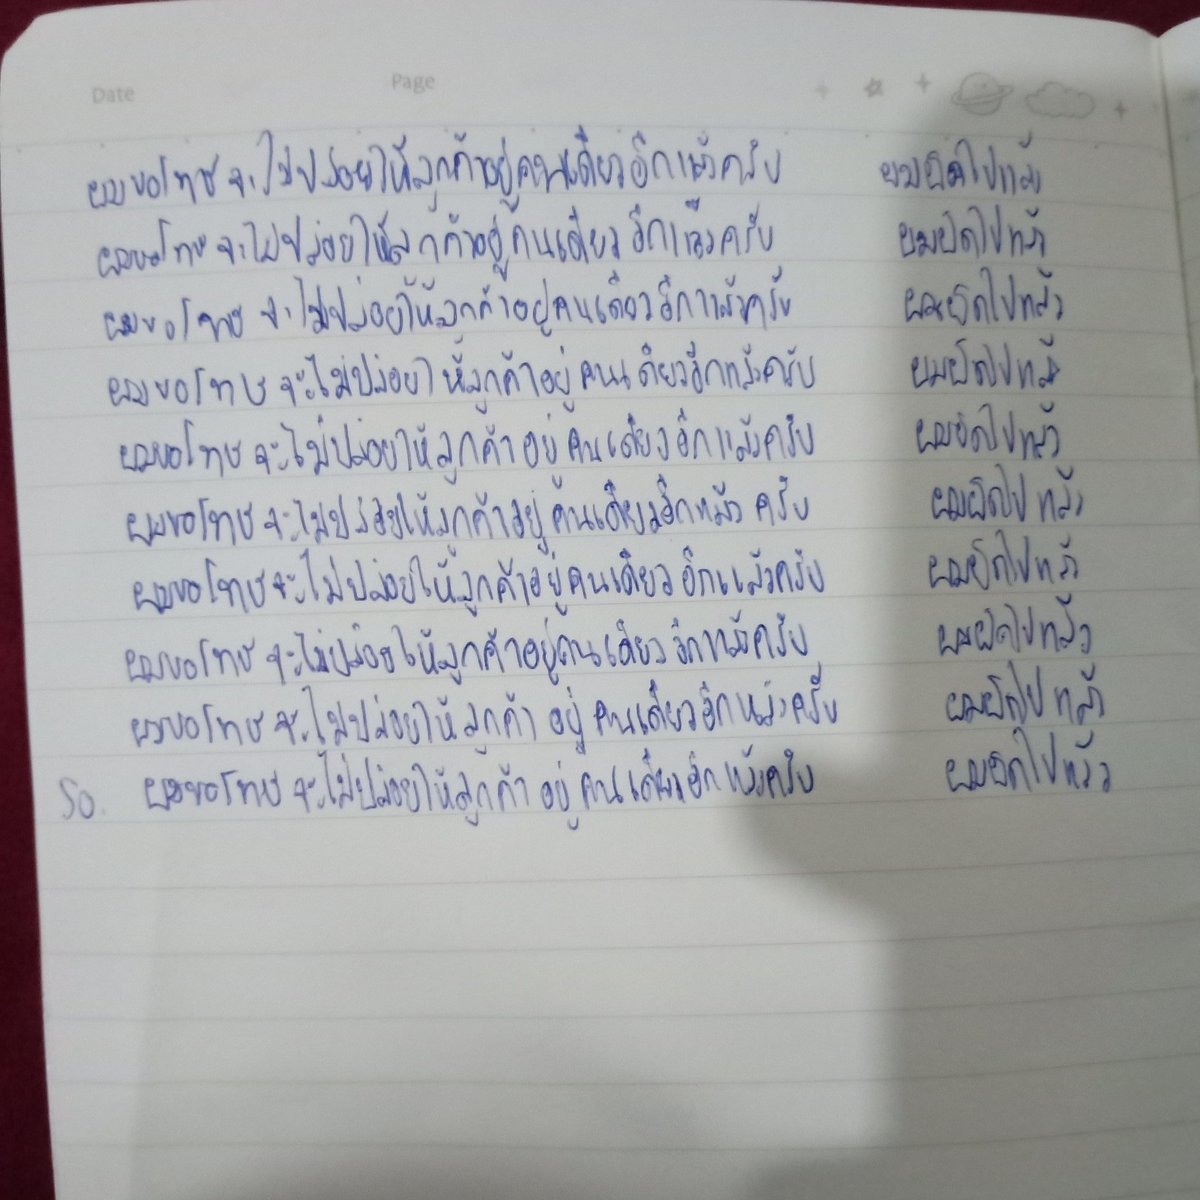 Date Page
ผมขอโทษ จะไม่ปล่อยให้ลูกค้าอยู่คนเดียวอีกแล้วครับ ผมผิดไปแล้ว
ผมขอโทษ จะไม่ปล่อยให้ลูกค้าอยู่คนเดียวอีกแล้วครับ ผมผิดไปแล้ว
ผมขอโทษ จะไม่ปล่อยให้ลูกค้าอยู่คนเดียวอีกแล้วครับ ผมผิดไปแล้ว
ผมขอโทษ จะไม่ปล่อยให้ลูกค้าอยู่คนเดียวอีกแล้วครับ ผมผิดไปแล้ว
ผมขอโทษ จะไม่ปล่อยให้ลูกค้าอยู่คนเดียวอีกแล้วครับ ผมผิดไปแล้ว
ผมขอโทษ จะไม่ปล่อยให้ลูกค้าอยู่คนเดียวอีกแล้วครับ ผมผิดไปแล้ว
ผมขอโทษ จะไม่ปล่อยให้ลูกค้าอยู่คนเดียวอีกแล้วครับ ผมผิดไปแล้ว
ผมขอโทษ จะไม่ปล่อยให้ลูกค้าอยู่คนเดียวอีกแล้วครับ ผมผิดไปแล้ว
ผมขอโทษ จะไม่ปล่อยให้ลูกค้าอยู่คนเดียวอีกแล้วครับ ผมผิดไปแล้ว
50. ผมขอโทษ จะไม่ปล่อยให้ลูกค้าอยู่คนเดียวอีกแล้วครับ ผมผิดไปแล้ว